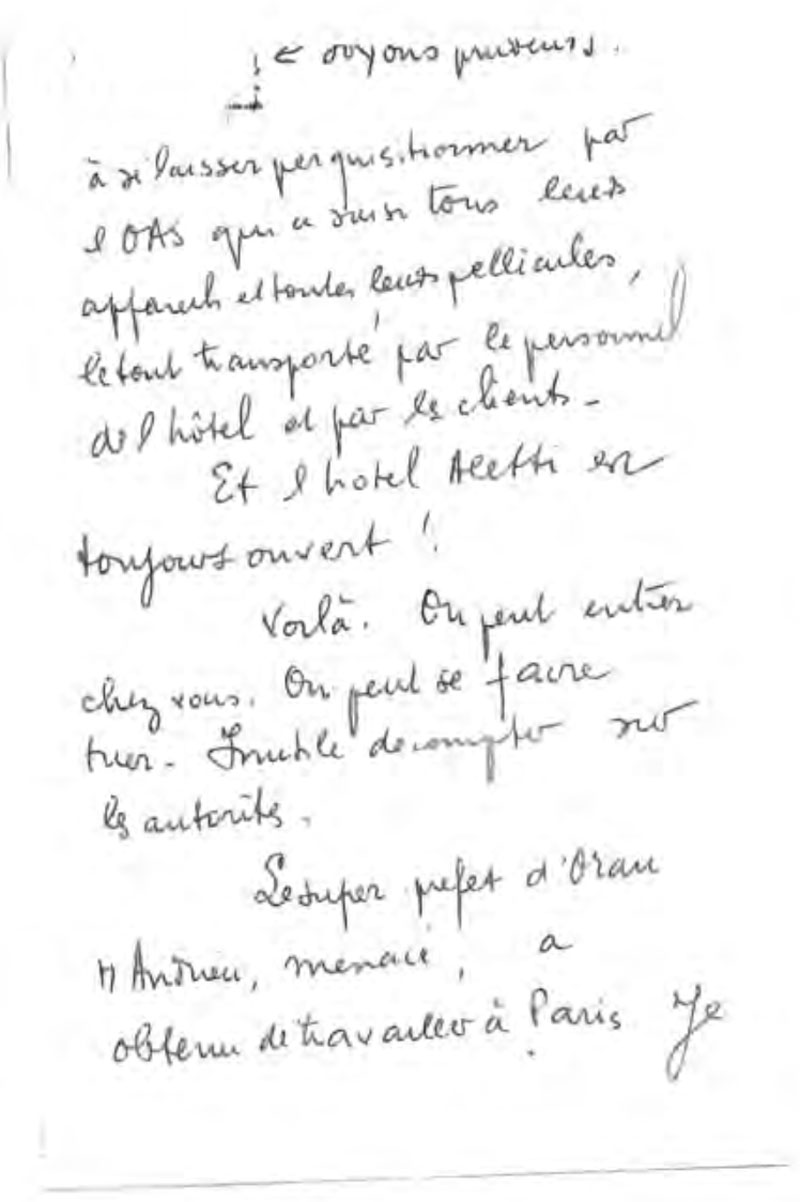 ! ← soyons prudents.
à se laisser perquisitionner par
l'OAS qui a saisi tous leurs
appareils et toutes leurs pellicules,
le tout transporté par le personnel
de l'hôtel et par les clients -
Et l'hotel Aletti est
toujours ouvert !
Voilà. On peut entrer
chez vous. On peut se faire
tuer - Inutile de compter sur
les autorités.
Le super prefet d'Oran
M Andrieu, menacé, a
obtenu de travailler à Paris. Je